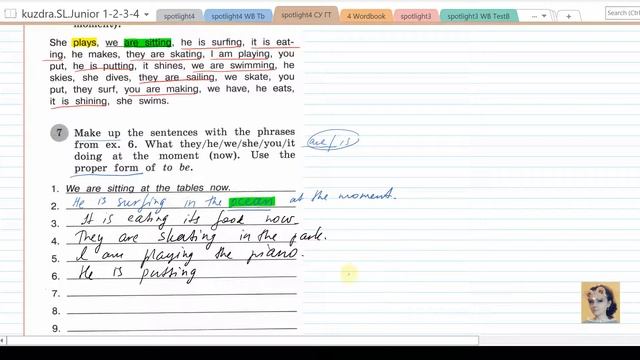 kuzdra.SL.Junior 1-2-3-4
spotlight4
spotlight4 WB Tb
spotlight4 СУ ГТ
4 Wordbook
spotlight3
spotlight3 WB TestB
Search (Ctrl
moment).
She plays, we are sitting, he is surfing, it is eat-
ing, he makes, they are skating, I am playing, you
put, he is putting, it shines, we are swimming, he
skies, she dives, they are sailing, we skate, you
put, they surf, you are making, we have, he eats,
it is shining, she swims.
7 Make up the sentences with the phrases
from ex. 6. What they/he/we/she/you/it
doing at the moment (now). Use the
proper form of to be.
are/is
1. We are sitting at the tables now.
2. He is surfing in the ocean at the moment.
3. It is eating its food now
4. They are skating in the park.
5. I am playing the piano.
6. He is putting
7.
8.
9.